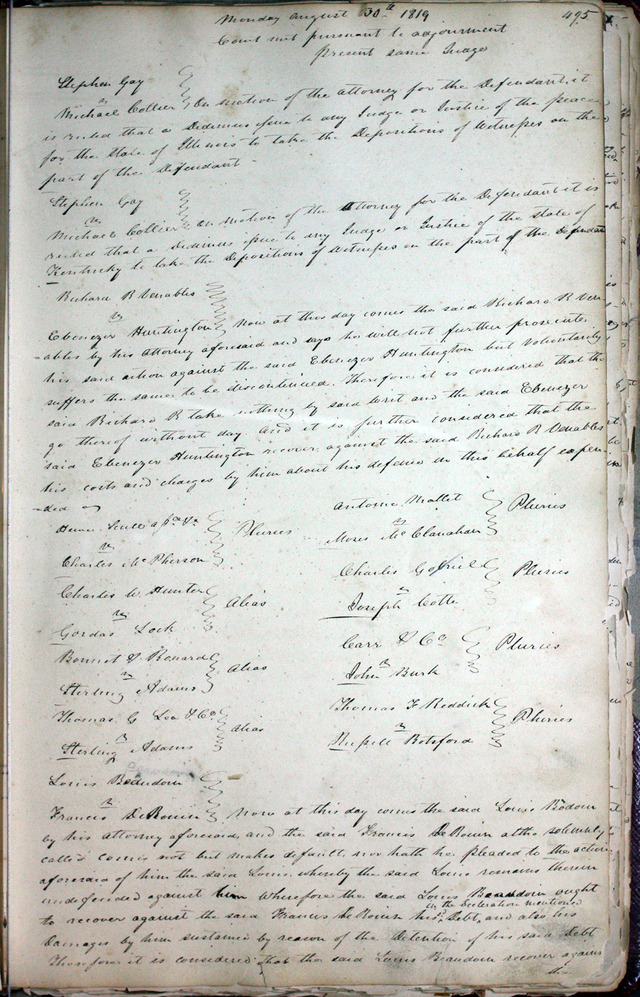 Monday August 30th 1819
495
Court met pursuant to adjournment
Present same Judge
Stephen Gay
vs
Michael Collier On motion of the attorney for the Defendant it
is ruled that a Dedimus issue to any Judge or Justice of the peace
for the State of Illinois to take the Depositions of witnesses on the
part of the Defendant
Stephen Gay
vs
Michael Collier on motion of the Attorney for the Defendant it is
ruled that a Dedimus issue to any Judge or Justice of the State of
Kentucky to take the Depositions of witnesses on the part of the Defendant
Richard R Venables
vs
Ebenezer Huntington Now at this day comes the said Richard R Ven
-ables by his attorney aforesaid and says he will not further prosecute
his said action against the said Ebenezer Huntington but voluntarily
suffers the same to be discontinued. Therefore it is considered that the
said Richard R take nothing by said writ and the said Ebenezer
go thereof without day and it is further considered that the
said Ebenezer Huntington recover against the said Richard R Venables
his costs and charges by him about his defence in this behalf expen
-ded
Pluries
vs
Charles McPherson
Charles W Hunter
Alias
vs
Gordas Lock
Bonnet & Bonard
Alias
vs
Sterling Adams
Thomas G Lea & Co
Alias
vs
Sterling Adams
Antoine Mallet
Pluries
vs
Moses McClanahan
Charles
Pluries
vs
Joseph Cotte
Carr & Co
Pluries
vs
John Burk
Thomas F Reddick
Pluries
vs
Russell Botsford
Louis Beaudoin
vs
Francis DeRouin Now at this day comes the said Louis Bodoin
by his attorney aforesaid, and the said Francis DeRouin altho solemnly
called comes not but makes default, nor hath he pleaded to the action
aforesaid of him the said Louis, whereby the said Louis remains therein
undefended against him Wherefore the said Louis Beaudoin ought
in the declaration mentioned
to recover against the said Francis DeRouin his Debt, and also his
Damages by him sustained by reason of the Detention of his said Debt
Therefore it is considered that the said Louis Beaudoin recover against